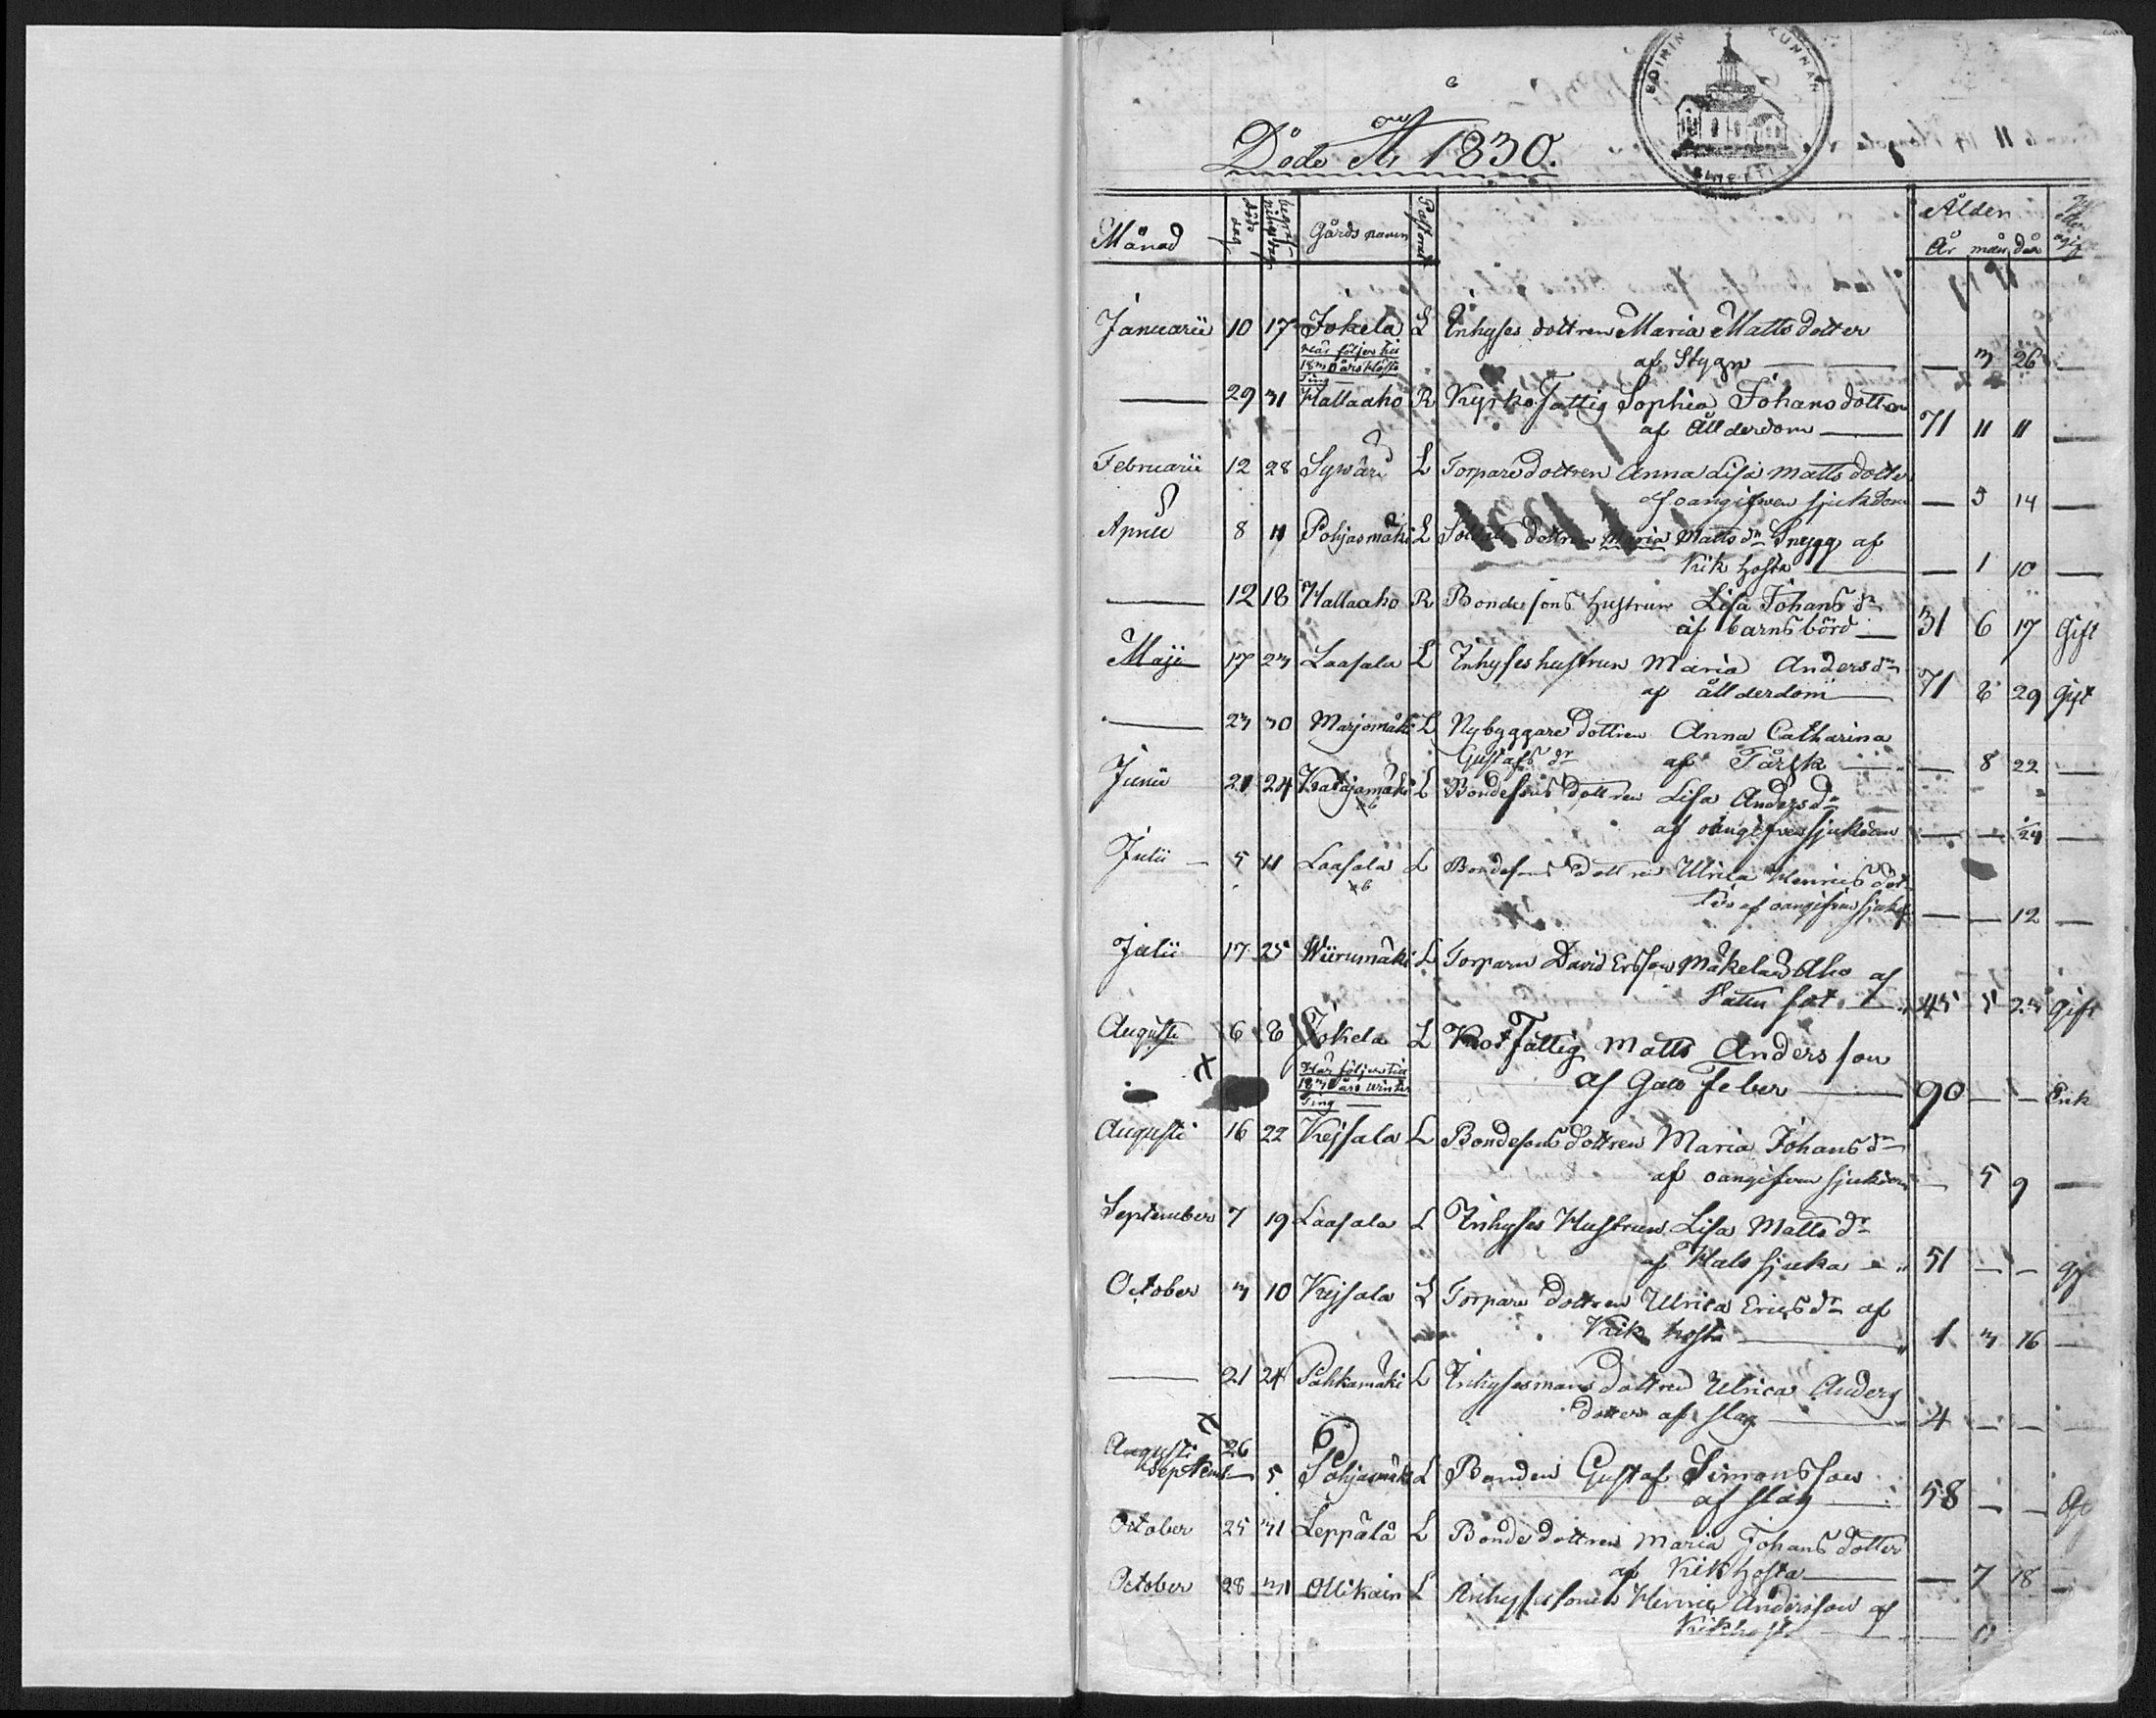 SOININ KUNNAN
Döde År 1830.
Månad döds dag begraf nings dag Gårds namn Pastorat Ålder
År mån dar
Januarii 10 17 Jokela L Inhyses dottren Maria Matts dotter
Här följer till
18 års Höste
Ting
af Stygn — 3 26 —
— 29 31 Hallaaho R Kyrko Fattig Sophia Johans dotter
af Ållderdom 71 11 11 —
Februarii 12 28 L Torpare dottren Anna Lisa Matts dotter
af oangifwen sjukdom — 3 14 —
April 8 11 Pohjasmäki L Soldat dottren Maria Matts dr Snygg af
Kik hosta — 1 10 —
— 12 18 Hallaaho R Bondesons hustrun Lisa Johans dr
af barnsbörd 31 6 17 Gift
Maji 17 23 Laasala L Inhyses hustrun Maria Anders dr
af ållderdom 71 8 29 Gift
— 23 30 Marjomäki L Nybyggare dottren Anna Catharina
Gustafs dr af Tårsk — 8 22 —
Junii 21 24 Katajamäki L Bondesons dottren Lisa Anders dr
af oangifven sjukdom — — 24 —
Julii 5 11 Laasala L Bondesons dottren Ulrica Henrics dot
ter af oangifven sjukd — — 12 —
Julii 17 25 Wiirumäki L Torparn David Ersson Mäkelän Aho af
Vatten sot 45 5 23 Gift
Augusti 6 8 Jokela L Rot Fattig Matts Andersson
Här följer till
18 års Winter
Ting
af Gall Feber 90 — — Enk
Augusti 16 22 Kejsala L Bondesons dottren Maria Johans dr
af oangifven sjukdom — 5 9 —
September 7 19 Laasala L Inhyses Hustrun Lisa Matts dr
af Hals sjuka 51 — — gf
October 3 10 Kejsala L Torpare dottren Ulrica Erics dr af
Kik hosta 1 3 16 —
— 21 24 Pahkamäki L Inhysesmans dottren Ulrica Anders
dotter af slag 4 — —
Augusti 26
September 5 Pohjasmäki L Bonden Gustaf Simonsson
af slag 58 — — Gf
October 25 31 Leppälä L Bonde dottren Maria Johans dotter
af Kikhosta — 7 18 —
October 28 31 Ollikain L Inhyses sonen Henric Andersson af
Kikhosta — 11